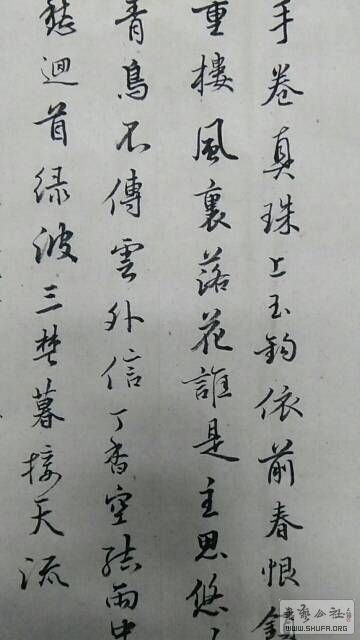 手卷真珠上玉鈎依前春恨鎖
重樓風裏落花誰是主思悠
青鳥不傳雲外信丁香空結雨中
愁迴首緑波三楚暮接天流
公社
WWW.SHUFA.ORG